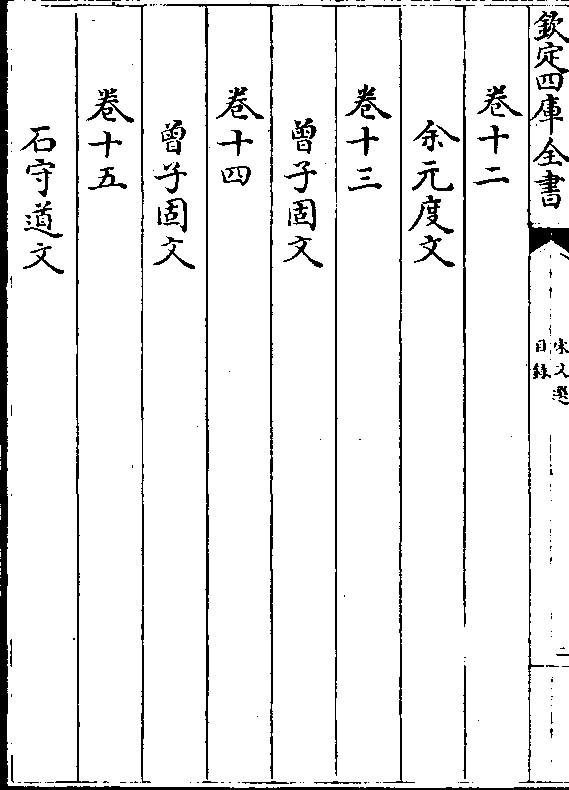 欽定四庫全書
宋文選
目錄
二
卷十二
余元度文
卷十三
曾子固文
卷十四
曾子固文
卷十五
石守道文